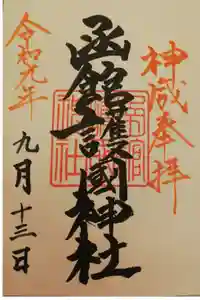 神威奉拝
函館護國神社
令和元年
九月十三日